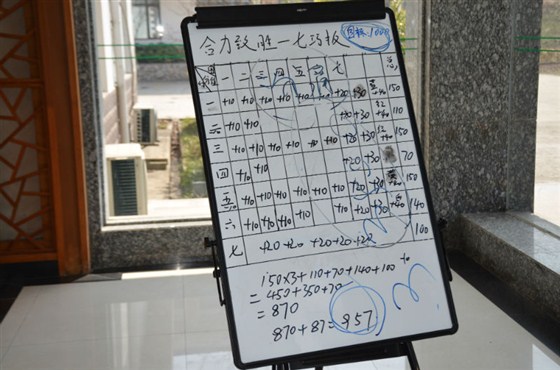 合力致胜一七巧板
图板1000
一 二 三 四 五 六 七
一 +10 +10 +10 +10 +10 +10 +20 +30 +40 150
二 +10 +10 +20 +30 +40 110
三 +10 +10 +10 +10 +10 +10 +20 +30 +40 150
四 +10 +10 +20 +30 70
五 +10 +10 +10 +10 +10 +10 +20 +30 +40 150
六 +10 +10 +10 +10 +10 +20 +30 +40 140
七 +20 +20 +20 +20 +20 100
150×3+110+70+140+100
=450+350+70
=870
870+87=957